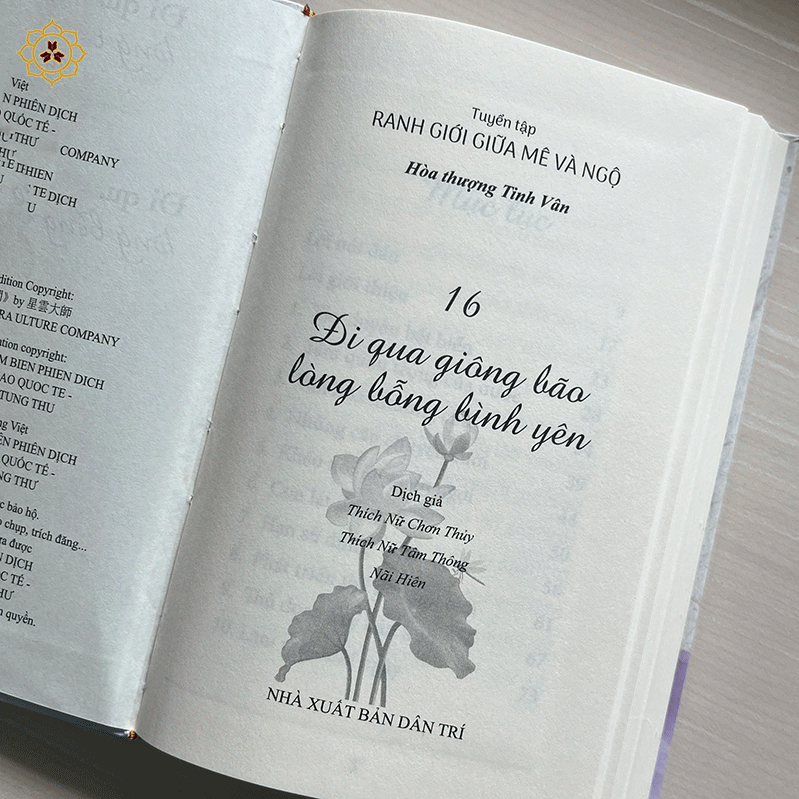 Việt
N PHIÊN DỊCH
QUỐC TẾ -
THƯ COMPANY
THƯ
TE THIEN
TE DỊCH
U
dition Copyright:
》by 星雲大師
RA ULTURE COMPANY
ation copyright:
M BIEN PHIEN DICH
AO QUOC TE -
TUNG THU
ng Việt
ÊN PHIÊN DỊCH
QUỐC TẾ -
NG THƯ
c bảo hộ.
chụp, trích đăng...
ra được
ÊN DỊCH
C TẾ -
HƯ
n quyền.
Tuyển tập
RANH GIỚI GIỮA MÊ VÀ NGỘ
Hòa thượng Tinh Vân
16
Đi qua giông bão
lòng bỗng bình yên
Dịch giả
Thích Nữ Chơn Thủy
Thích Nữ Tâm Thông
Nãi Hiên
NHÀ XUẤT BẢN DÂN TRÍ